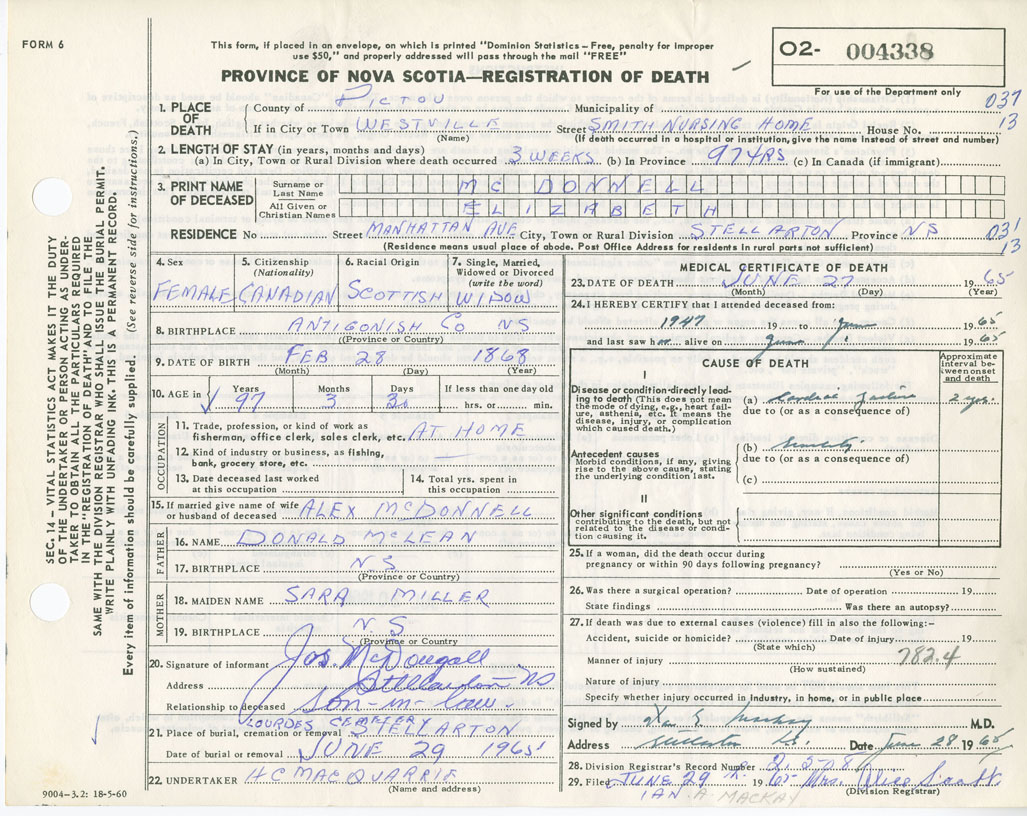 FORM 6
This form, if placed in an envelope, on which is printed "Dominion Statistics – Free, penalty for improper
use $50," and properly addressed will pass through the mail "FREE"
PROVINCE OF NOVA SCOTIA—REGISTRATION OF DEATH
O2- 004338
For use of the Department only
037
13
1. PLACE OF DEATH
County of PICTOU Municipality of
If in City or Town WESTVILLE Street SMITH NURSING HOME House No.
(Name) (If death occurred in a hospital or institution, give the name instead of street and number)
2. LENGTH OF STAY (in years, months and days)
(a) In City, Town or Rural Division where death occurred 3 WEEKS (b) In Province 97 YRS. (c) In Canada (if immigrant)
3. PRINT NAME OF DECEASED
Surname or Last Name MC DONNELL
All Given or Christian Names ELIZABETH
RESIDENCE No Street MANHATTAN AVE City, Town or Rural Division STELLARTON Province NS
031
13
(Residence means usual place of abode. Post Office Address for residents in rural parts not sufficient)
SEC. 14 – VITAL STATISTICS ACT MAKES IT THE DUTY
OF THE UNDERTAKER OR PERSON ACTING AS UNDER-
TAKER TO OBTAIN ALL THE PARTICULARS REQUIRED
IN THE "REGISTRATION OF DEATH" AND TO FILE THE
SAME WITH THE DIVISION REGISTRAR WHO SHALL ISSUE THE BURIAL PERMIT.
WRITE PLAINLY WITH UNFADING INK. THIS IS A PERMANENT RECORD.
Every item of information should be carefully supplied. (See reverse side for instructions.)
4. Sex
FEMALE
5. Citizenship
(Nationality)
CANADIAN
6. Racial Origin
SCOTTISH
7. Single, Married,
Widowed or Divorced
(write the word)
WIDOW
8. BIRTHPLACE ANTIGONISH CO NS
(Province or Country)
9. DATE OF BIRTH FEB 28 1868
(Month) (Day) (Year)
10. AGE in
Years 97
Months 3
Days 30
If less than one day old
hrs. or min.
OCCUPATION
11. Trade, profession, or kind of work as
fisherman, office clerk, sales clerk, etc. AT HOME
12. Kind of industry or business, as fishing,
bank, grocery store, etc. —
13. Date deceased last worked
at this occupation
14. Total yrs. spent in
this occupation
15. If married give name of wife
or husband of deceased ALEX MCDONNELL
FATHER
16. NAME DONALD MCLEAN
17. BIRTHPLACE NS
(Province or Country)
MOTHER
18. MAIDEN NAME SARA MILLER
19. BIRTHPLACE N.S
(Province or Country
20. Signature of informant Jos. McDougall
Address Stellarton NS
Relationship to deceased son-in-law.
LOURDES CEMETERY
21. Place of burial, cremation or removal STELLARTON
Date of burial or removal JUNE 29 1965
22. UNDERTAKER H C MACQUARRIE
(Name and address)
9004–3.2: 18-5-60
MEDICAL CERTIFICATE OF DEATH
23. DATE OF DEATH JUNE 27 1965
(Month) (Day) (Year)
24. I HEREBY CERTIFY that I attended deceased from:
1947 19 to June 1965
and last saw h alive on June 1965
CAUSE OF DEATH
Approximate
interval be-
tween onset
and death
I
Disease or condition directly lead-
ing to death (This does not mean
the mode of dying, e.g., heart fail-
ure, asthenia, etc. It means the
disease, injury, or complication
which caused death.)
(a) Cardiac failure 2 yrs.
due to (or as a consequence of)
Antecedent causes
Morbid conditions, if any, giving
rise to the above cause, stating
the underlying condition last.
(b) Senility
due to (or as a consequence of)
(c)
II
Other significant conditions
contributing to the death, but not
related to the disease or condi-
tion causing it.
25. If a woman, did the death occur during
pregnancy or within 90 days following pregnancy?
(Yes or No)
26. Was there a surgical operation? Date of operation 19
State findings Was there an autopsy?
27. If death was due to external causes (violence) fill in also the following:–
Accident, suicide or homicide? Date of injury 19
(State which)
782.4
Manner of injury
(How sustained)
Nature of injury
Specify whether injury occurred in industry, in home, or in public place
Signed by M.D.
Address Stellarton N.S. Date June 28 1965
28. Division Registrar's Record Number
29. Filed JUNE 29 1965 Mrs. Alice Scott
(Division Registrar)
IAN A MACKAY